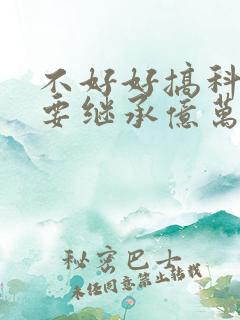 不好好搞科
要继承億萬
秘密巴士
未经同意禁止转载